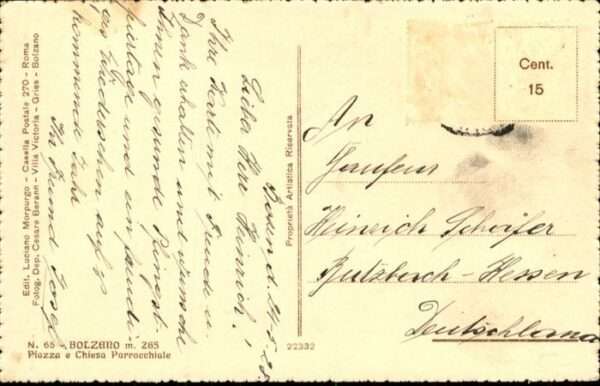 Bozen d. 24.5.28
Lieber Herr Heinrich!
Ihre Karte mit Freude u.
Dank erhalten und wünsche
Ihnen gesunde Pfingst-
feiertage und ein
Wiedersehen auf's
kommende Jahr
Ihr Freund Josef
Edit. Luciano Morpurgo - Casella Postale 270 - Roma
Fotog. Dep. Cesare Berann - Villa Victoria - Gries - Bolzano
N. 65 - BOLZANO m. 265
Piazza e Chiesa Parrocchiale
Proprietà Artistica Riservata
22332
Cent.
15
An
Heinrich Schäfer
Butzbach-Hessen
Deutschland